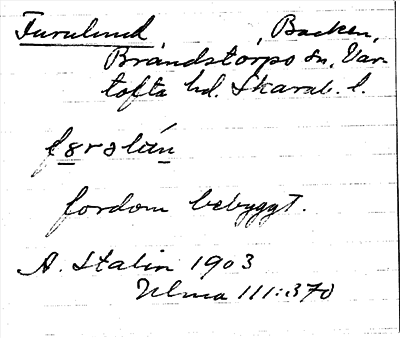 Furulund, Backen,
Brandstorps sn, Var-
tofta hd. Skarab. l.
fordom bebyggt.
A. Stalin 1903
Ulma 111:370